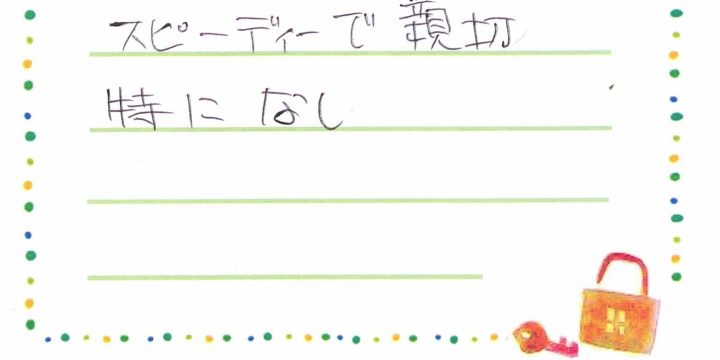 スピーディーで親切
特になし